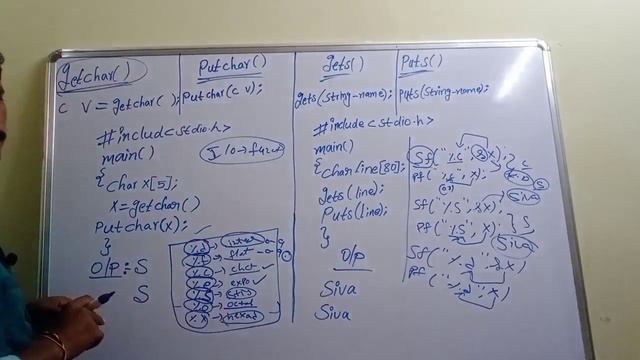 getchar()
Putchar()
gets()
Puts()
C V = getchar();
Putchar(c v);
gets(string-name);
Puts(string-name);
#include<stdio.h>
main()
{
char x[5];
x=getchar()
Putchar(x);
}
O/P: S
S
%d
%f
%c → chct
%e → expo
%s
%o → octal
%x → hexad
#include<stdio.h>
main()
{ char line[80];
gets(line);
Puts(line);
}
O/P
Siva
Siva
Sf("%c", &x);
Pf("%c", x);
Sf("%s", &x)
Pf("%s", x);
Siva
Sf("%d", &x)
Pf("%d", x)